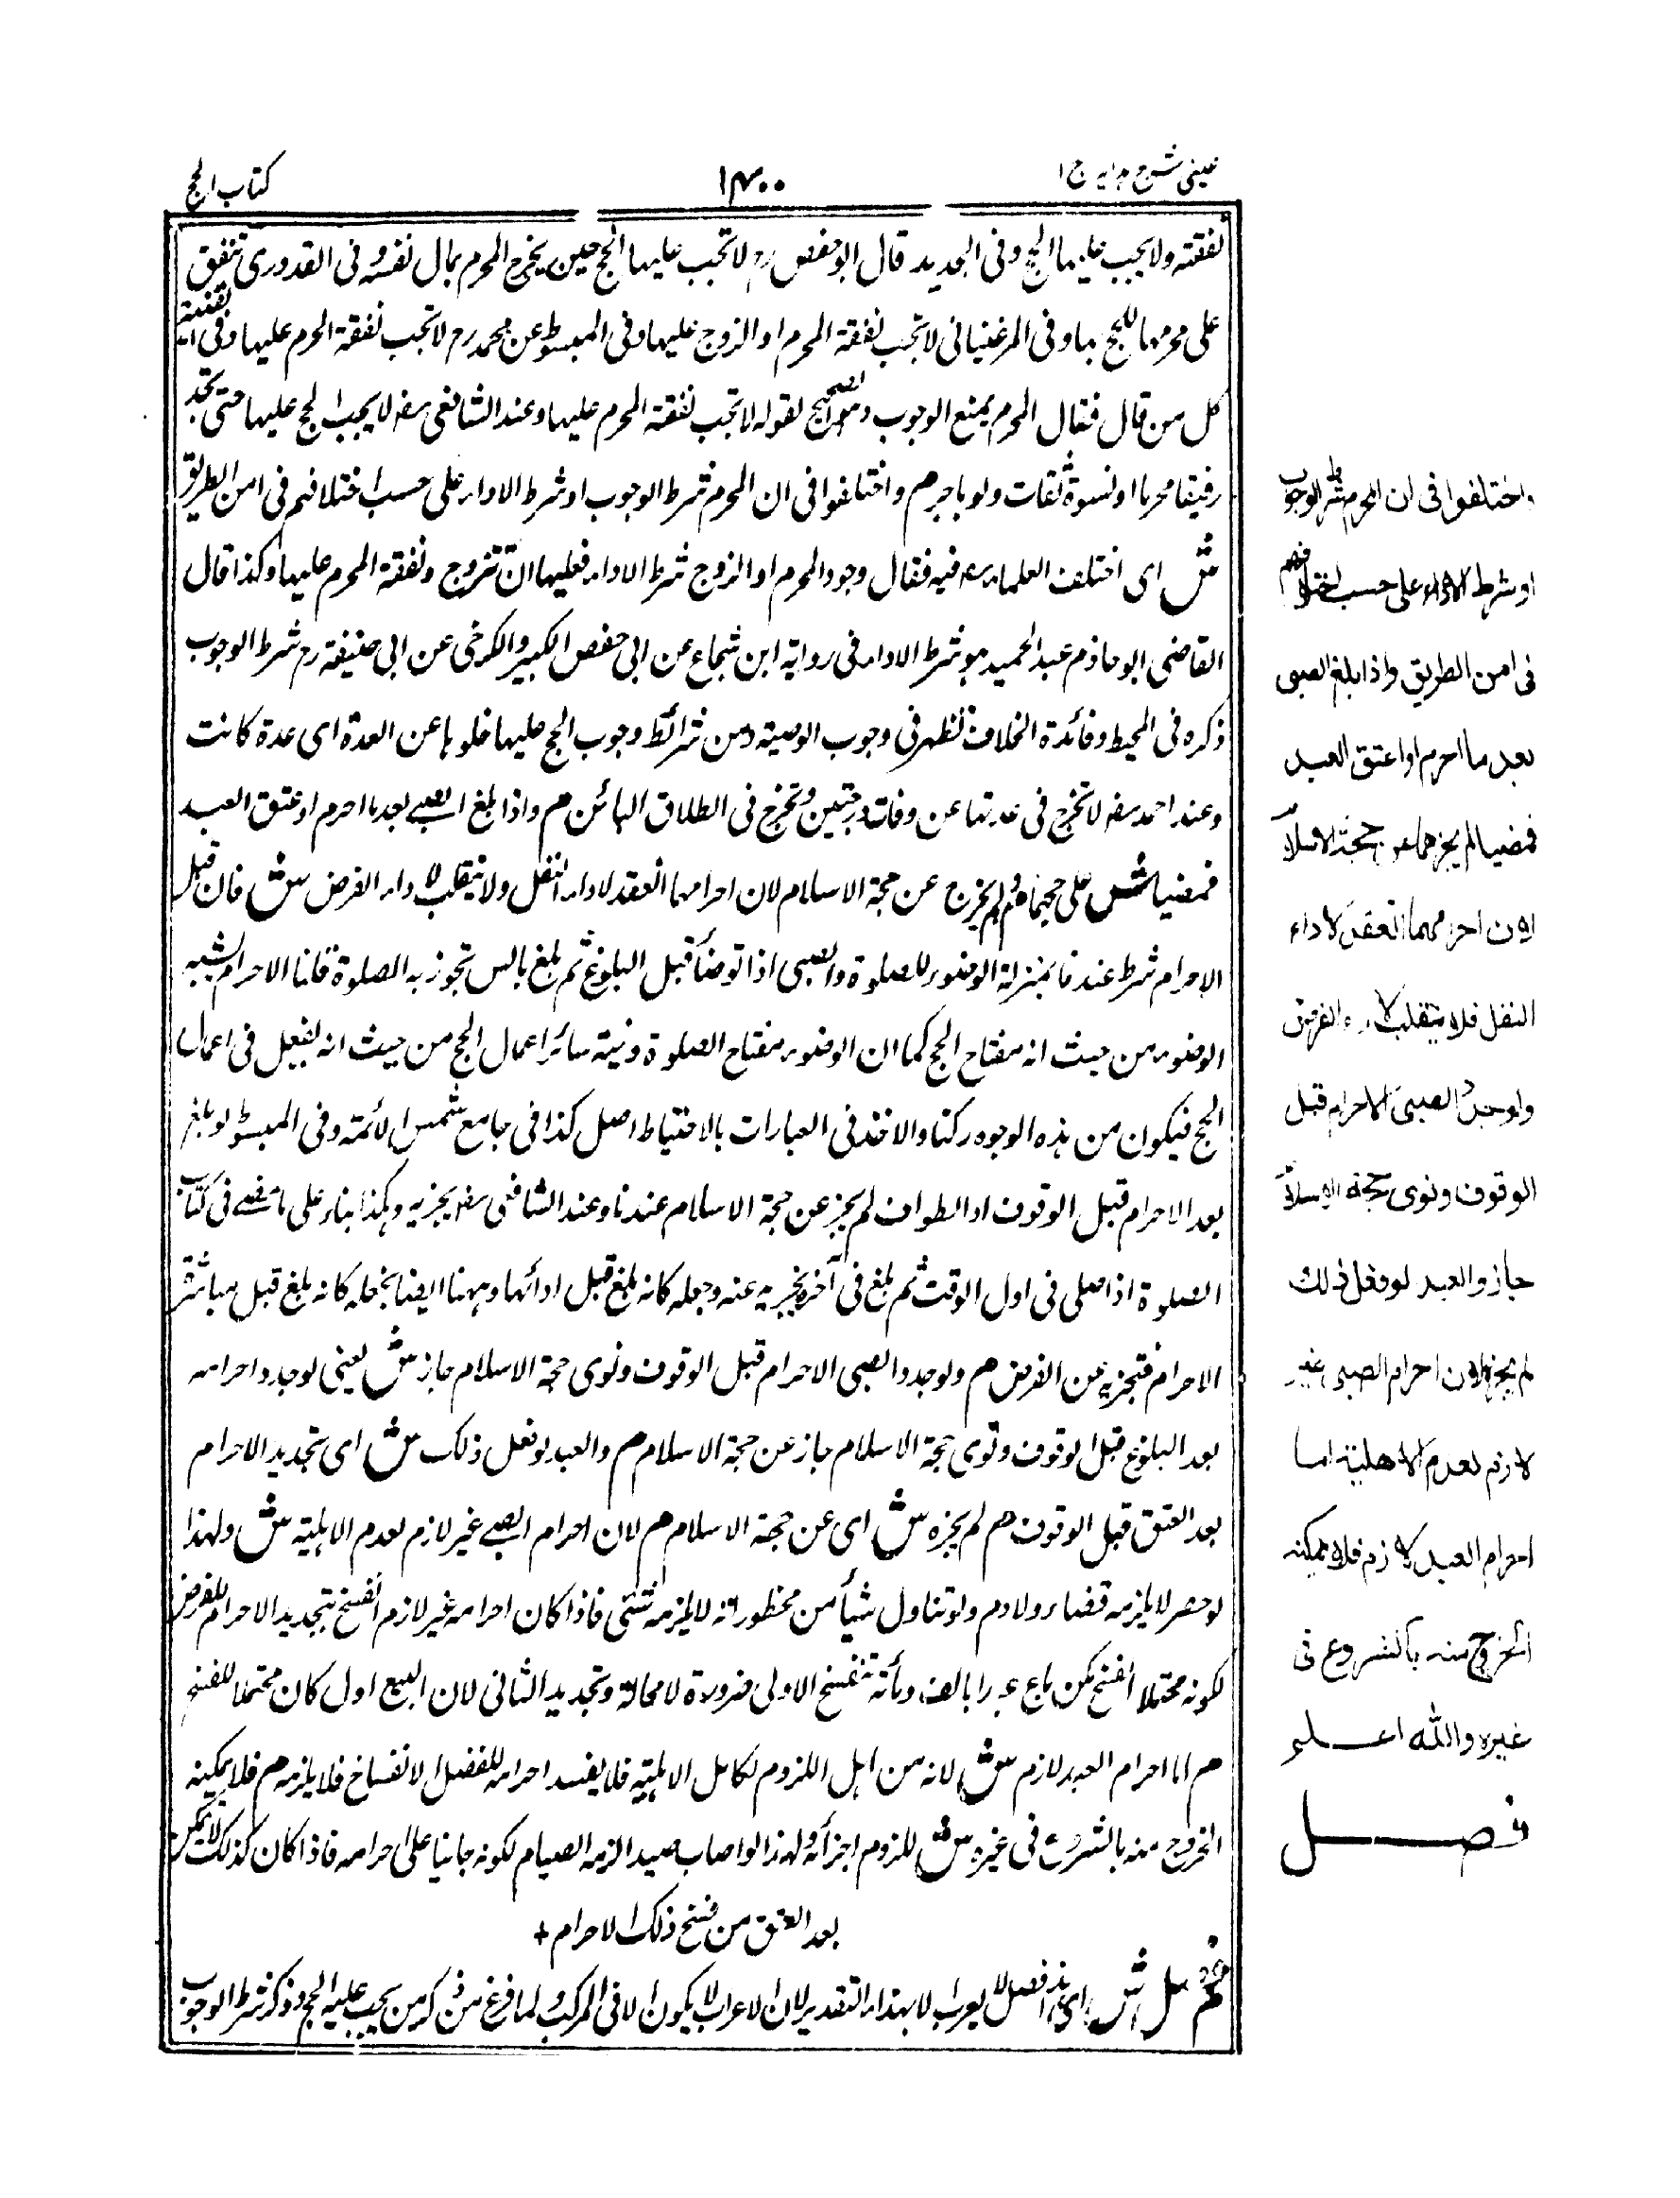 عینی شرح ہدایہ ج ۱
۱۴۰۰
کتاب الحج
نفقته ولا يجب عليها الحج وفى الجديد قال ابو حفص رح لا تجب عليها الحج حين يخرج المحرم بمال نفسه وفى القدورى تنفق
على محرمها للحج بها وفى المرغينانى لا تجب نفقة المحرم او الزوج عليها وفى المبسوط عن محمد رح لا تجب نفقة المحرم عليها وفى
كل من قال فقال المحرم يمنع الوجوب وهو الصحيح لقوله لا تجب نفقة المحرم عليها وعند الشافعى رح لا يجب الحج عليها حتى تجد
رفيقا محرما او نسوة ثقات ولو باجرهم واختلفوا فى ان المحرم شرط الوجوب او شرط الاداء على حسب اختلافهم فى امن الطريق
ش اى اختلف العلماء رح فيه فقال وجود المحرم او الزوج شرط الاداء فعليها ان تتزوج ونفقة المحرم عليها وكذا قال
القاضى ابو حازم عبد الحميد هو شرط الاداء فى رواية ابن شجاع عن ابى حفص الكبير والكرخى عن ابى حنيفة رح شرط الوجوب
ذكره فى المحيط وفائدة الخلاف تظهر فى وجوب الوصية ومن شرائط وجوب الحج عليها خلوها عن العدة اى عدة كانت
وعند احمد رح لا تخرج فى عدتها عن وفات وتخرج فى الطلاق البائن م واذا بلغ الصبى بعد ما احرم او عتق العبد
فمضيا ش على حجهما م لم عن حجة الاسلام لان احرامهما انعقد لاداء النفل ولا ينقلب لاداء الفرض ش فان قيل
الاحرام شرط عندنا بمنزلة الوضوء للصلوة والصبى اذا توضأ قبل البلوغ ثم بلغ بالسن تجوز به الصلوة قلنا الاحرام يشبه
الوضوء من حيث انه مفتاح الحج كما ان الوضوء مفتاح الصلوة ونية سائر اعمال الحج من حيث انه يفعل فى اعمال
الحج فيكون من هذه الوجوه ركنا والاخذ فى العبارات بالاحتياط اصل كذا فى جامع شمس الائمة وفى المبسوط لو بلغ
بعد الاحرام قبل الوقوف او الطواف لم يجز عن حجة الاسلام عندنا وعند الشافعى رح يجزيه وهكذا بناء على ما مضى فى كتاب
الصلوة اذا صلى فى اول الوقت ثم بلغ فى آخره يجزيه عنه وجعله كانه بلغ قبل ادائها وههنا ايضا يجعله كانه بلغ قبل مباشرة
الاحرام فتجزيه عن الفرض م ولو جدد الصبى الاحرام قبل الوقوف ونوى حجة الاسلام جاز ش يعنى لو جدد احرامه
بعد البلوغ قبل الوقوف ونوى حجة الاسلام جاز عن حجة الاسلام م والعبد لو فعل ذلك ش اى تجديد الاحرام
بعد العتق قبل الوقوف م لم يجزه ش اى عن حجة الاسلام م لان احرام الصبى غير لازم لعدم الاهلية ش ولهذا
لو حصر لا يلزمه قضاء ولا دم ولو تناول شيأ من محظوراته لا يلزمه شئى فاذا كان احرامه غير لازم انفسخ بتجديد الاحرام للفرض
لكونه محتملا الفسخ كمن باع عبدا بالف ومأة تنفسخ الاولى ضرورة لا محالة وتجديد الثانى لان البيع اول كان محتملا للفسخ
م اما احرام العبد لازم ش لانه من اهل اللزوم لكامل الاهلية فلا يفسد احرامه الانفساخ فلا يلزمه م فلا يمكنه
الخروج منه بالشروع فى غيره ش للزوم اجزأه ولهذا لو اصاب صيدا لزمه الصيام لكونه جانيا على احرامه فاذا كان كذلك لا يمكن
بعد العتق من فسخ ذلك الاحرام +
فصل ش اى هذا فصل لا يعرب الا بهذا التقدير لان الاعراب لا يكون الا فى المركب ولما فرغ من ذكر من يجب عليه الحج وذكر شرط الوجوب
واختلفوا فى ان المحرم شرط الوجوب
او شرط الاداء على حسب اختلافهم
فى امن الطريق واذا بلغ الصبى
بعد ما احرم او اعتق العبد
فمضيا لم يجزهما عن حجة الاسلام
لان احرامهما انعقد لاداء
النفل فلا ينقلب لاداء الفرض
ولو جدد الصبى الاحرام قبل
الوقوف ونوى حجة الاسلام
جاز والعبد لو فعل ذلك
لم يجز لان احرام الصبى غير
لازم لعدم الاهلية اما
احرام العبد لازم فلا يمكنه
الخروج منه بالشروع فى
غيره والله اعلم
فصل